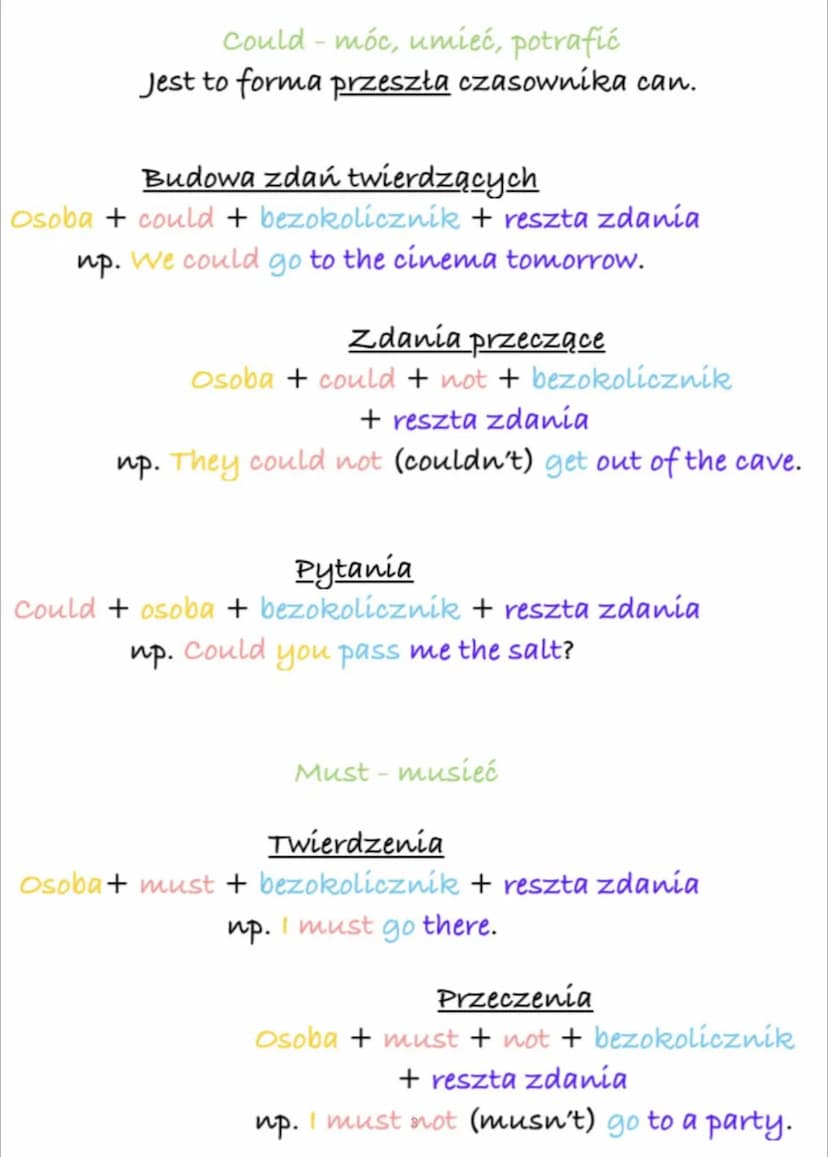 Could - móc, umieć, potrafić
Jest to forma przeszła czasownika can.
Budowa zdań twierdzących
Osoba + could + bezokolicznik + reszta zdania
np. We could go to the cinema tomorrow.
Zdania przeczące
Osoba + could + not + bezokolicznik
+ reszta zdania
np. They could not (couldn't) get out of the cave.
Pytania
Could + osoba + bezokolicznik + reszta zdania
np. Could you pass me the salt?
Must - musieć
Twierdzenia
Osoba+ must + bezokolicznik + reszta zdania
np. I must go there.
Przeczenia
Osoba + must + not + bezokolicznik
+ reszta zdania
np. I must not (musn't) go to a party.